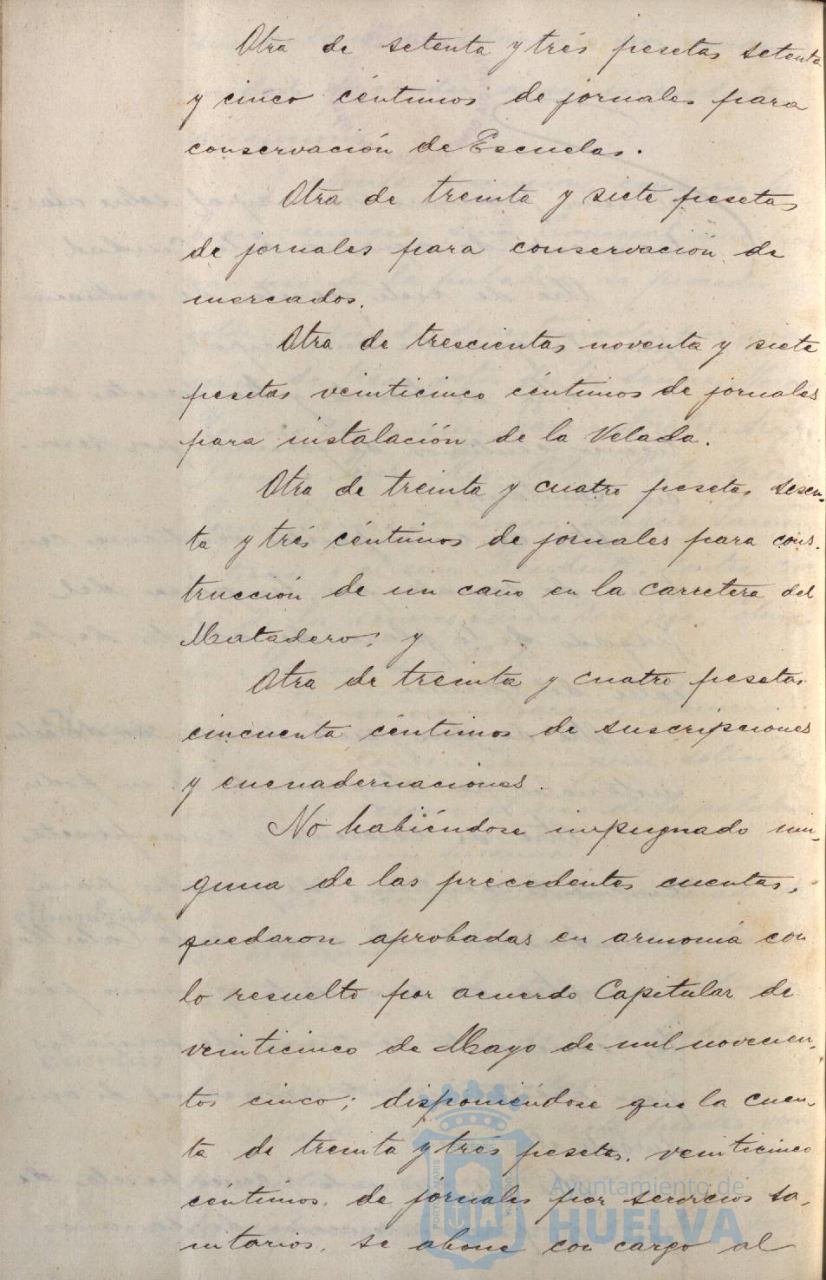 Otra de setenta y tres pesetas setenta
y cinco céntimos de jornales para
conservación de Escuelas.
Otra de treinta y siete pesetas
de jornales para conservación de
mercados.
Otra de trescientas noventa y siete
pesetas veinticinco céntimos de jornales
para instalación de la Velada.
Otra de treinta y cuatro pesetas sesen-
ta y tres céntimos de jornales para cons-
trucción de un caño en la carretera del
Matadero; y
Otra de treinta y cuatro pesetas
cincuenta céntimos de suscripciones
y encuadernaciones.
No habiéndose impugnado nin-
guna de las precedentes cuentas,
quedaron aprobadas en armonía con
lo resuelto por acuerdo Capitular de
veinticinco de Mayo de mil novecien-
tos cinco; disponiéndose que la cuen-
ta de treinta y tres pesetas veinticinco
céntimos de jornales por servicios sa-
nitarios, se abone con cargo al
Ayuntamiento de
HUELVA